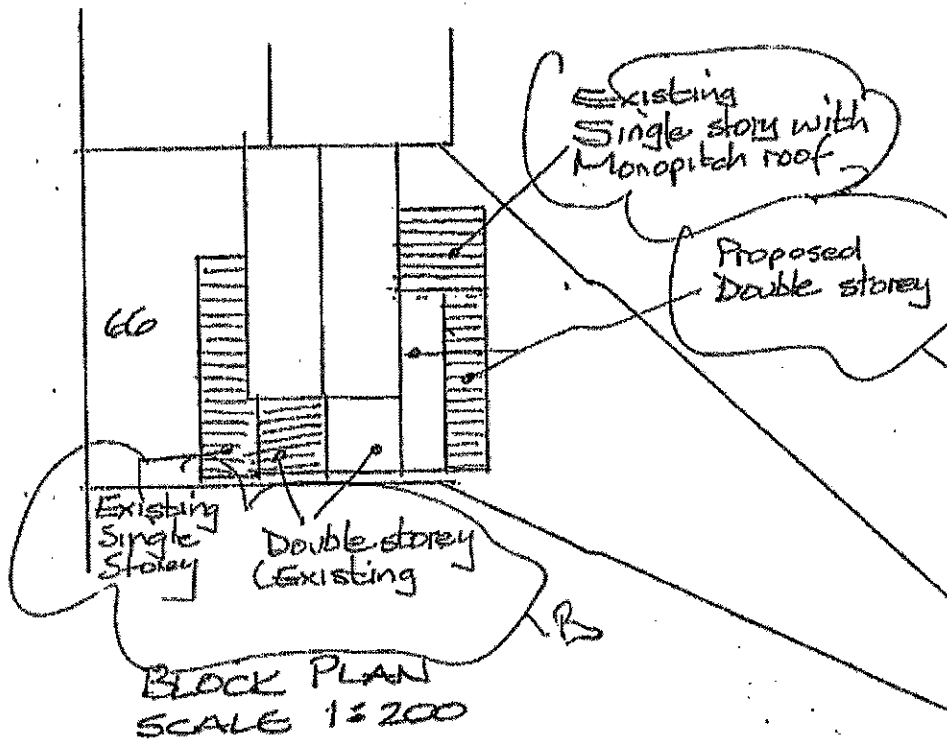 Existing
Single story with
Monopitch roof
Proposed
Double storey
66
Existing
Single
Storey
Double storey
(Existing
BLOCK PLAN
SCALE 1:200